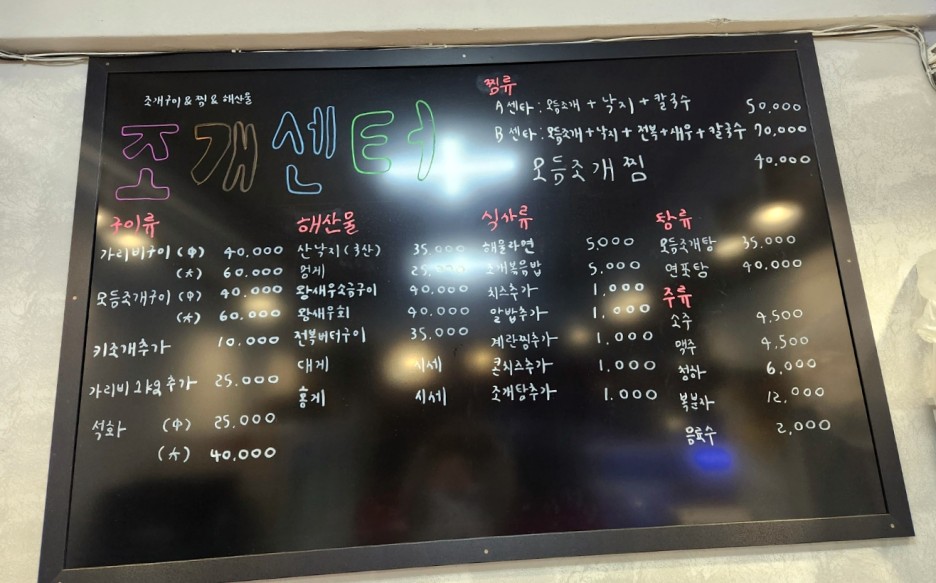 조개구이 & 찜 & 해산물
조개센터
찜류
A센타 : 모듬조개 + 낙지 + 칼국수 50,000
B센타 : 모듬조개+낙지+전복+새우+칼국수 70,000
모듬조개찜 40,000
구이류
가리비구이 (中) 40,000
(大) 60,000
모듬조개구이 (中) 40,000
(大) 60,000
키조개추가 10,000
가리비 추가 25,000
석화 (中) 25,000
(大) 40,000
해산물
산낙지 (국산) 35,000
멍게
왕새우소금구이 40,000
왕새우회 40,000
전복버터구이 35,000
대게 시세
홍게 시세
식사류
해물라면 5,000
조개볶음밥 5,000
치즈추가 1,000
알밥추가 1,000
계란찜추가 1,000
콘치즈추가 1,000
조개탕추가 1,000
탕류
모듬조개탕 35,000
연포탕 40,000
주류
소주 4,500
맥주 4,500
청하 6,000
복분자 12,000
음료수 2,000